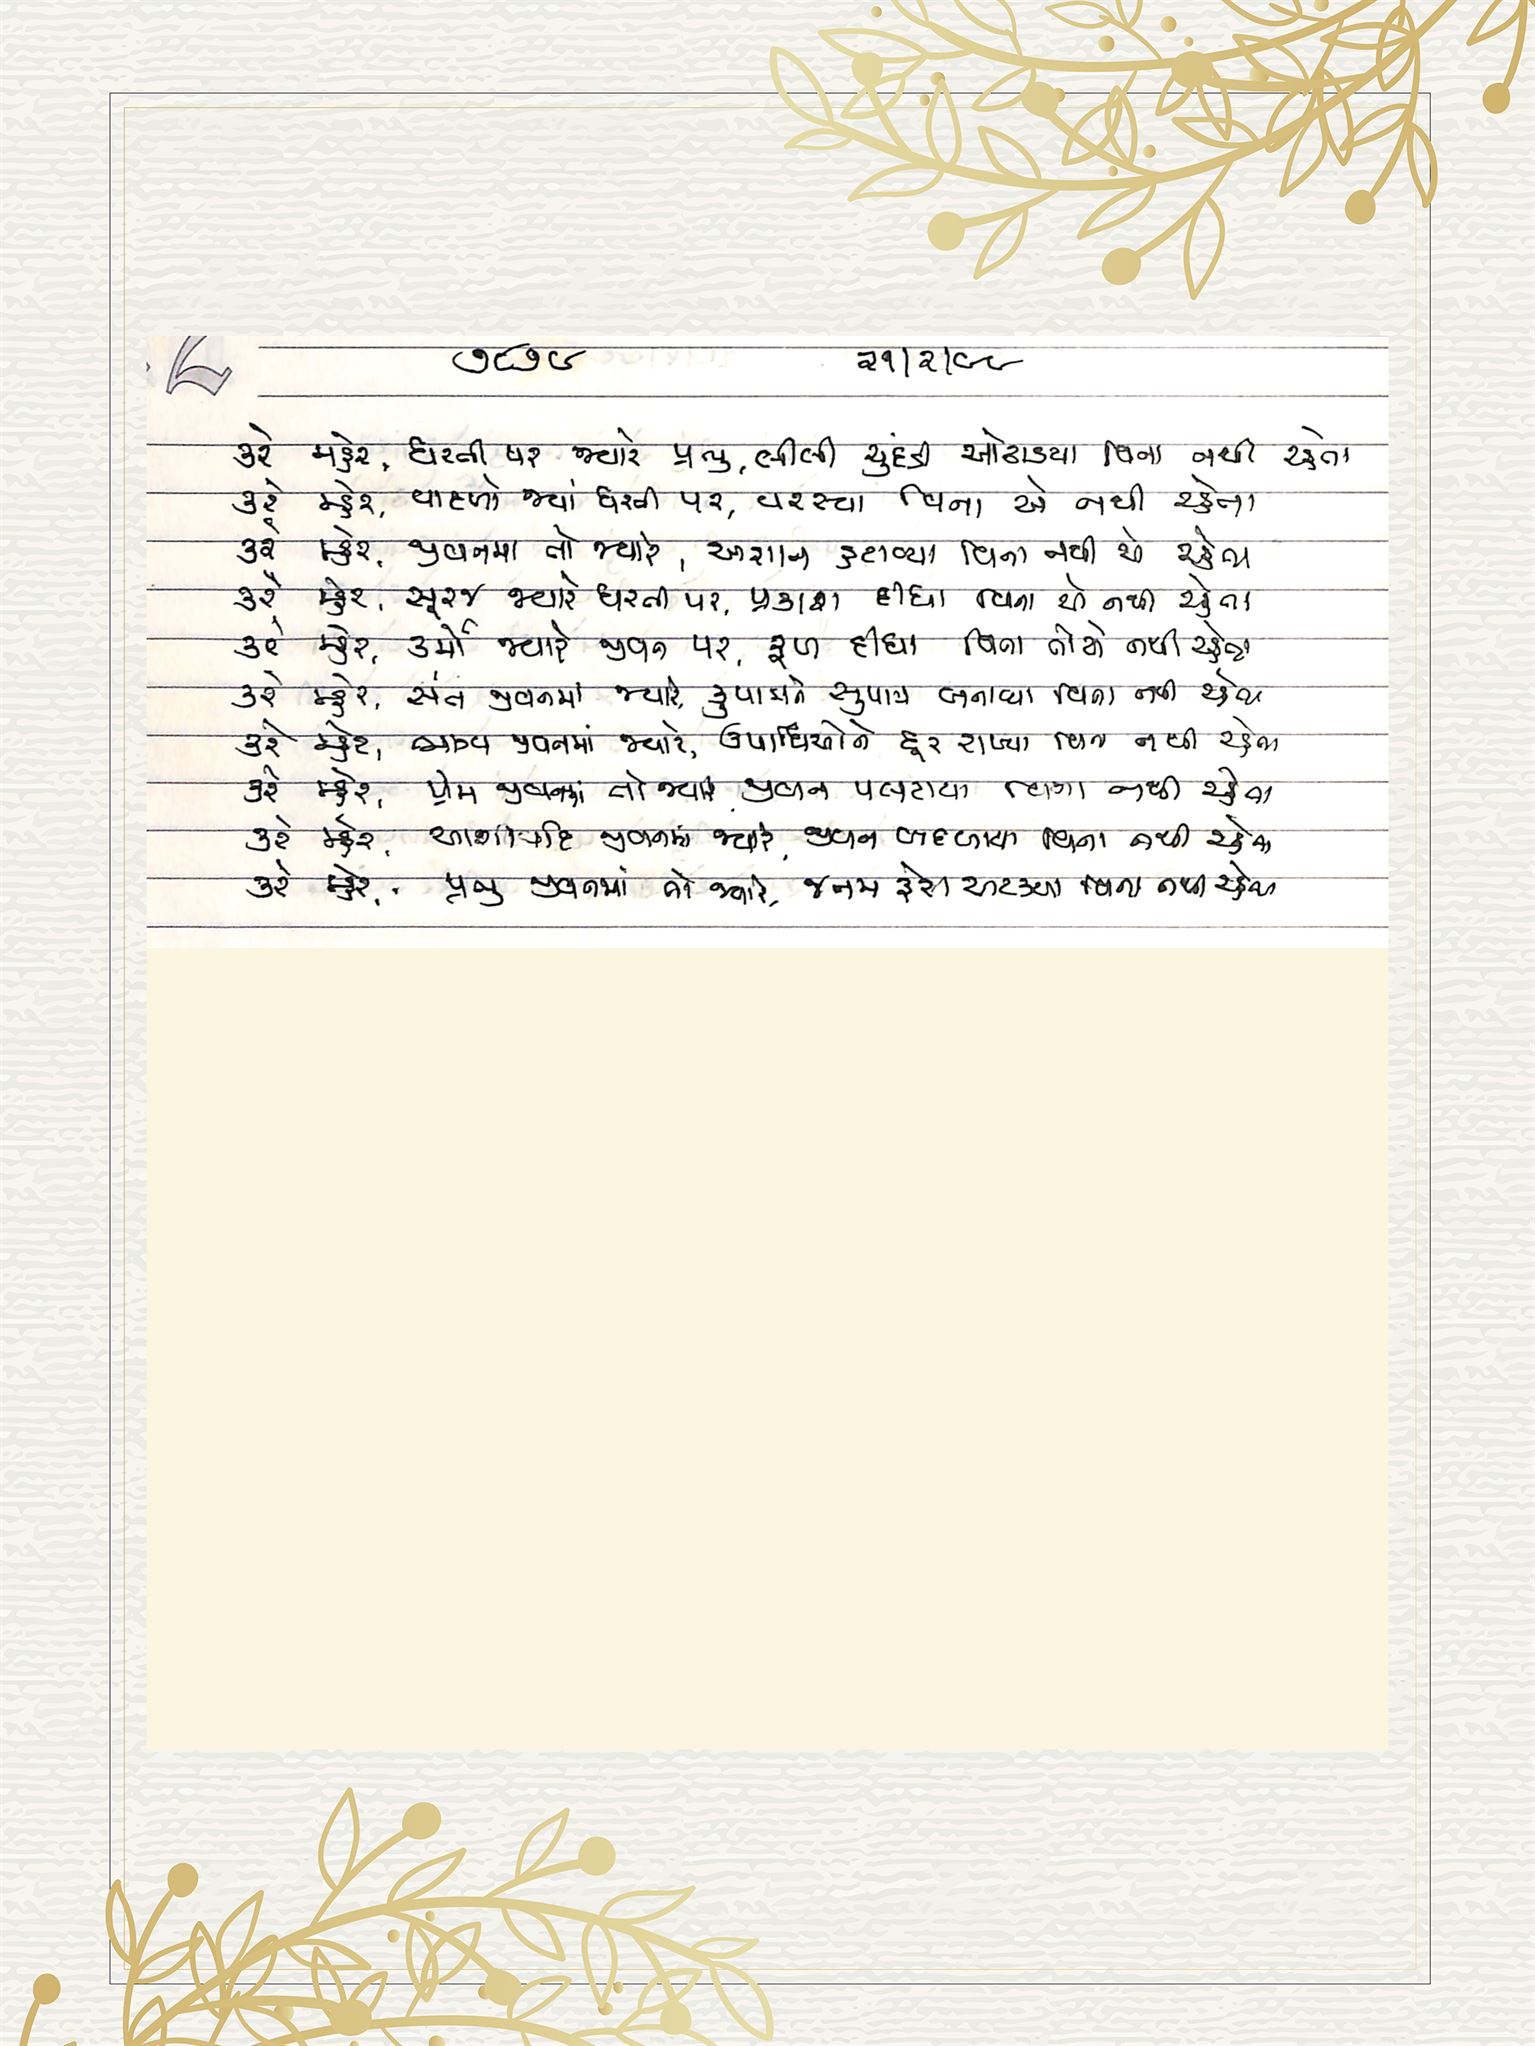 ૭૮૭૬ ૨૧/૨/૯૯
કરે મહેર, ધરતી પર જ્યારે પ્રભુ, લીલી ચુંદડી ઓઢાડયા વિના નથી રહેતા
કરે મ્હેર, વાદળો જ્યાં ધરતી પર, વરસ્યા વિના એ નથી રહેતા
કરે મ્હેર, જીવનમાં તો જ્યારે, અજ્ઞાન હટાવ્યા વિના નથી એ રહેતા
કરે મ્હેર, સૂરજ જ્યારે ધરતી પર, પ્રકાશ દીધા વિના એ નથી રહેતા
કરે મ્હેર, કર્મો જ્યારે જીવન પર, ફળ દીધા વિના તોયે નથી રહેતા
કરે મ્હેર, સંત જીવનમાં જ્યારે, કુપાત્રને સુપાત્ર બનાવ્યા વિના નથી રહેતા
કરે મ્હેર, ભાગ્ય જીવનમાં જ્યારે, ઉપાધિઓને દૂર રાખ્યા વિના નથી રહેતા
કરે મ્હેર, પ્રેમ જીવનમાં તો જ્યારે, જીવન પલટાયા વિના નથી રહેતા
કરે મ્હેર, જીવનમાં જ્યારે, જીવન બદલાયા વિના નથી રહેતા
કરે મ્હેર, પ્રભુ જીવનમાં તો જ્યારે, જનમ ફેરા અટક્યા વિના નથી રહેતા